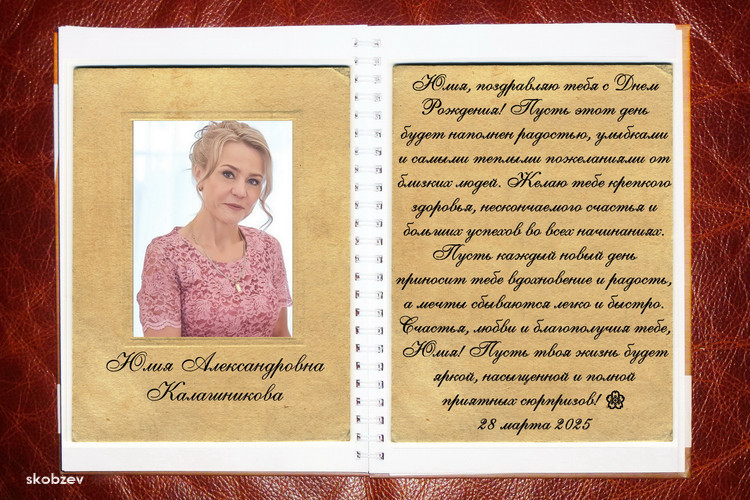 Юлия Александровна
Калашникова
Юлия, поздравляю тебя с Днем
Рождения! Пусть этот день
будет наполнен радостью, улыбками
и самыми теплыми пожеланиями от
близких людей. Желаю тебе крепкого
здоровья, нескончаемого счастья и
больших успехов во всех начинаниях.
Пусть каждый новый день
приносит тебе вдохновение и радость,
а мечты сбываются легко и быстро.
Счастья, любви и благополучия тебе,
Юлия! Пусть твоя жизнь будет
яркой, насыщенной и полной
приятных сюрпризов!
28 марта 2025
skobzev